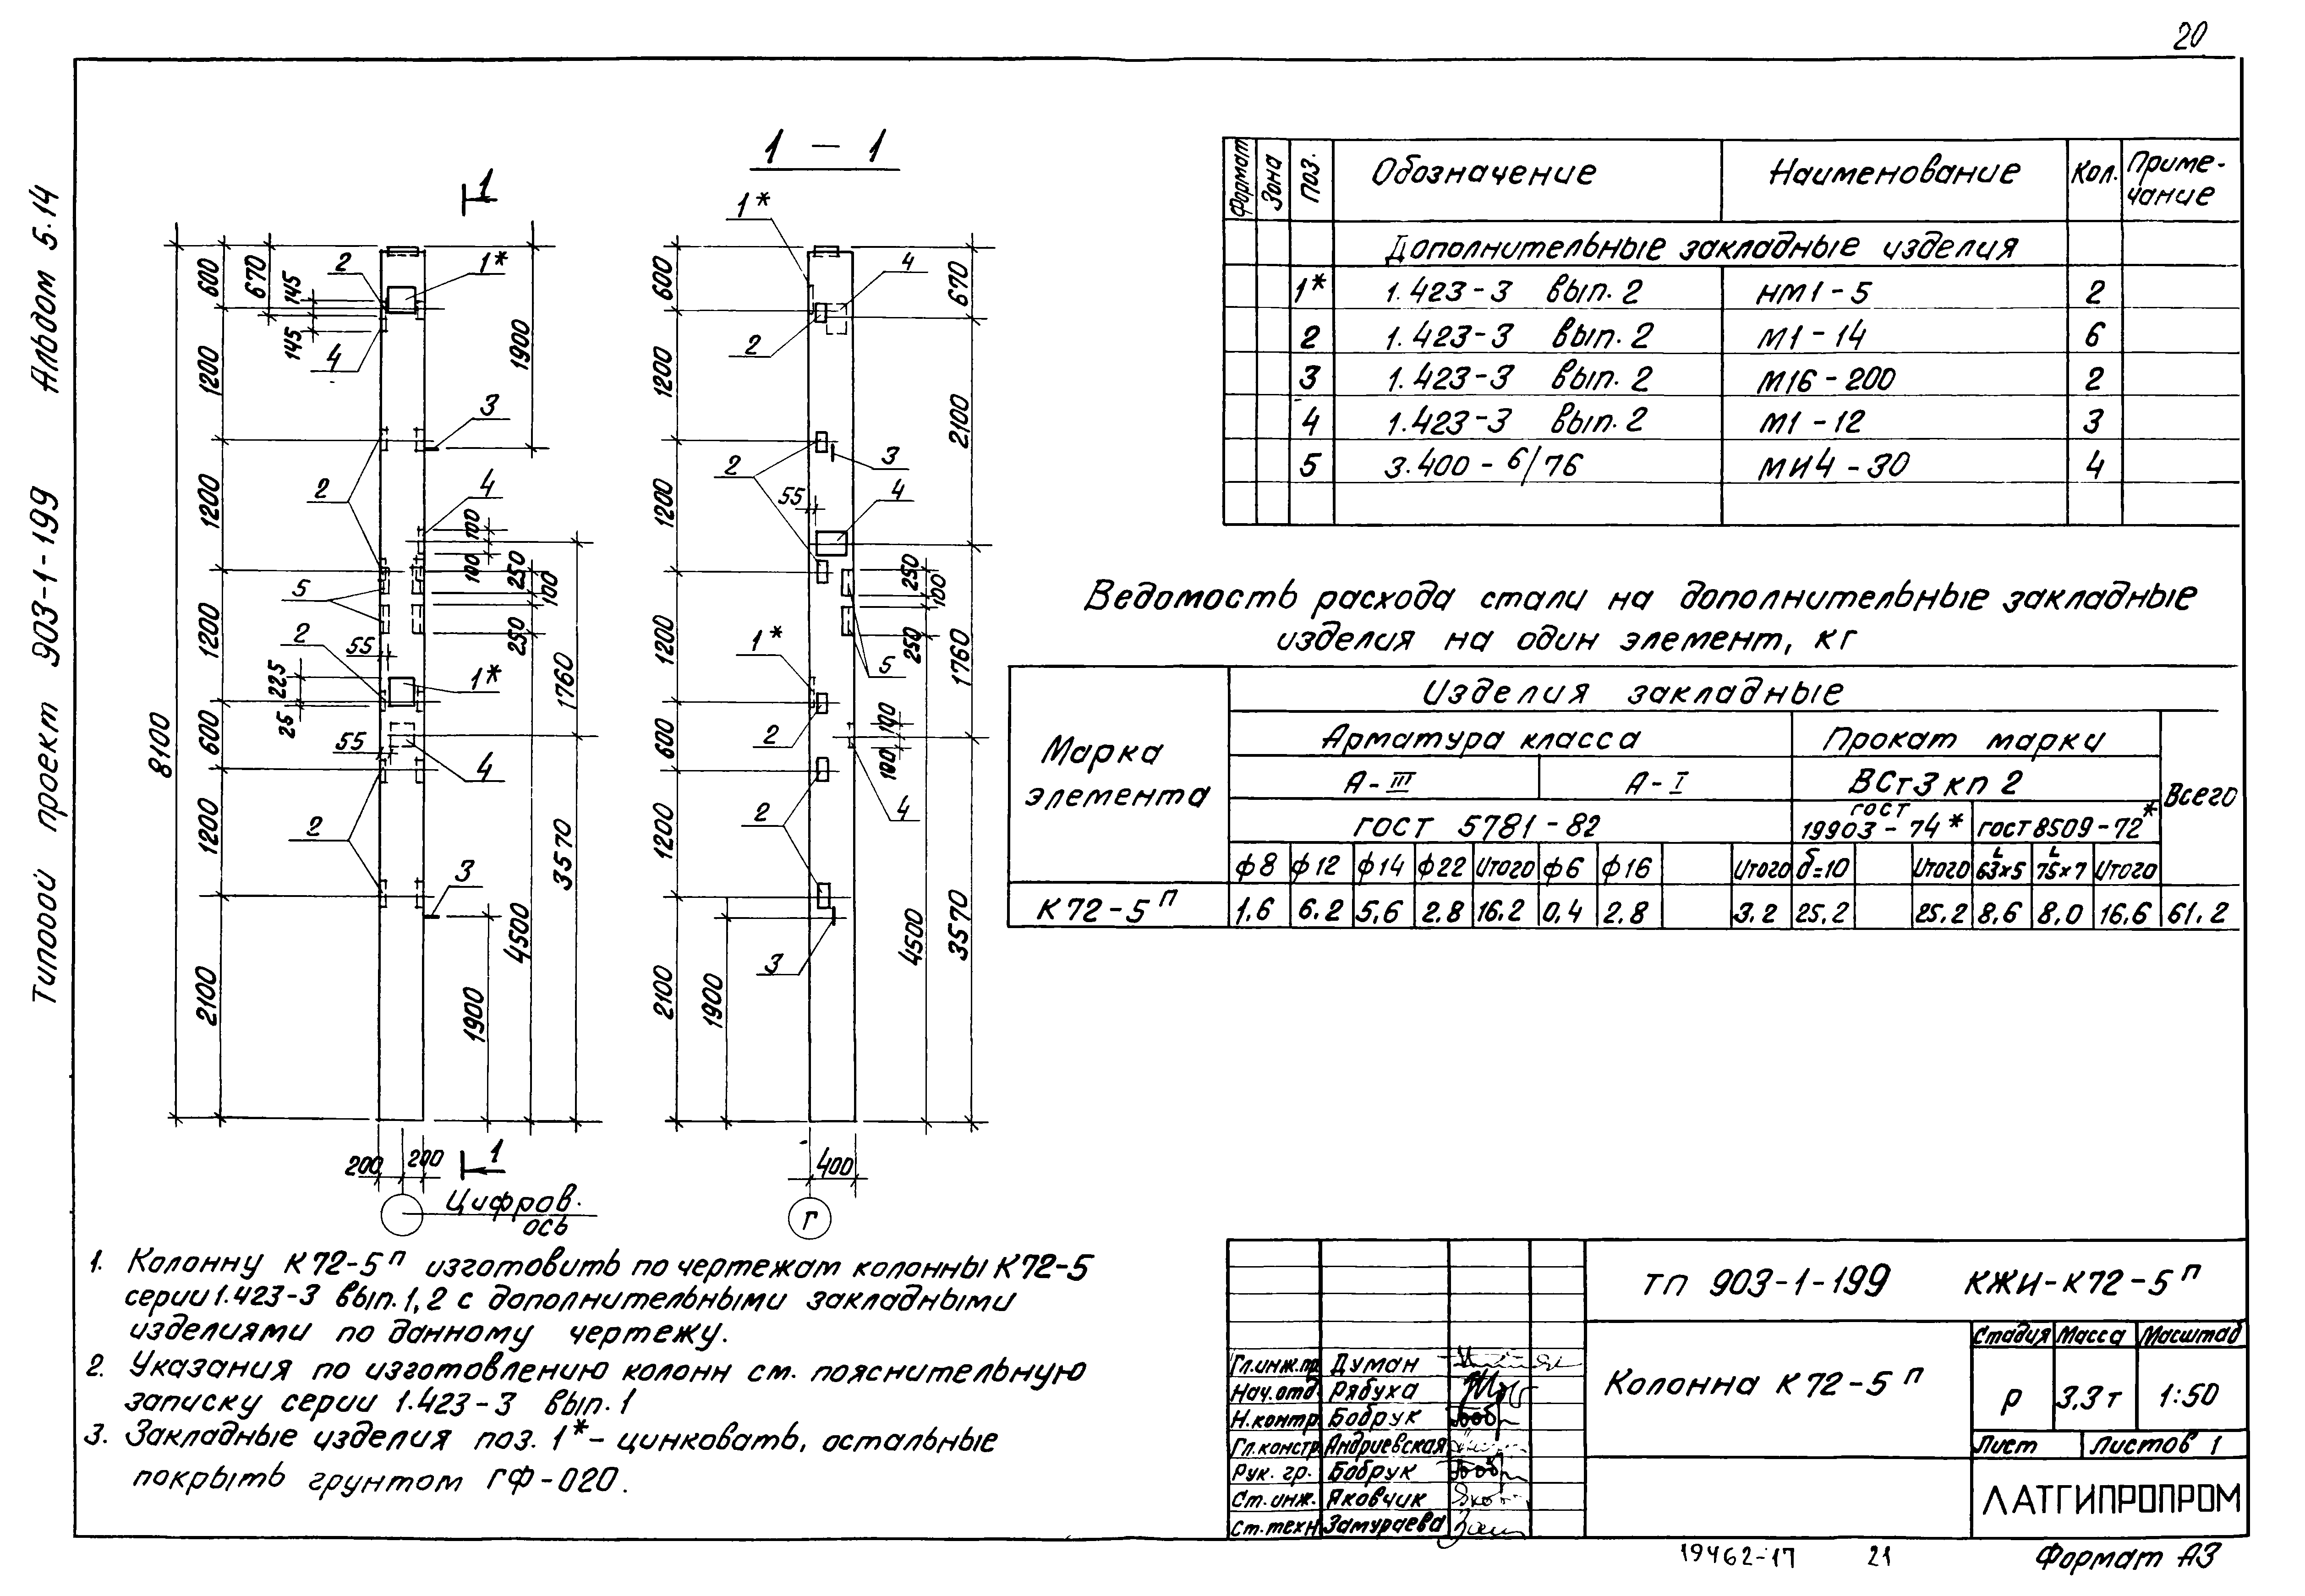 20
Типовой проект 903-1-199 Альбом 5.14
1
1 - 1
1*
2
4
3
4
2
5
2
1*
4
2
3
600
670
145
145
1200
1900
1200
100
100
250
100
250
1200
55
225
25
1760
600
55
8100
1200
3570
4500
2100
1900
200
200
1
Цифров.
ось
1*
4
2
3
2
4
5
1*
2
4
2
3
600
670
1200
2100
1200
55
250
100
250
1200
1760
600
100
100
1200
4500
3570
2100
1900
400
Г
Формат Зона Поз. Обозначение Наименование Кол. Приме-
чание
Дополнительные закладные изделия
1* 1.423-3 вып. 2 НМ1-5 2
2 1.423-3 вып. 2 М1-14 6
3 1.423-3 вып. 2 М16-200 2
4 1.423-3 вып. 2 М1-12 3
5 3.400-6/76 МИ4-30 4
Ведомость расхода стали на дополнительные закладные
изделия на один элемент, кг
Марка
элемента
Изделия закладные
Арматура класса Прокат марки
А-III А-I ВСт3кп2 Всего
ГОСТ 5781-82 ГОСТ
19903-74* ГОСТ 8509-72*
ф8 ф12 ф14 ф22 Итого ф6 ф16 Итого δ=10 Итого L 63×5 L 75×7 Итого
К72-5П 1,6 6.2 5,6 2,8 16.2 0,4 2,8 3.2 25.2 25.2 8,6 8,0 16,6 61.2
1. Колонну К72-5П изготовить по чертежам колонны К72-5
серии 1.423-3 вып. 1, 2 с дополнительными закладными
изделиями по данному чертежу.
2. Указания по изготовлению колонн см. пояснительную
записку серии 1.423-3 вып. 1
3. Закладные изделия поз. 1*- цинковать, остальные
покрыть грунтом ГФ-020.
ТП 903-1-199 КЖИ-К72-5П
Колонна К72-5П
Стадия Масса Масштаб
Р 3,3т 1:50
Лист Листов 1
ЛАТГИПРОПРОМ
Гл.инж.пр Думан
Нач.отд. Рябуха
Н.контр. Бобрук
Гл.констр. Андриевская
Рук. гр. Бобрук
Ст.инж. Яковчик
Ст.техн. Замураева
19462-17 21 Формат А3